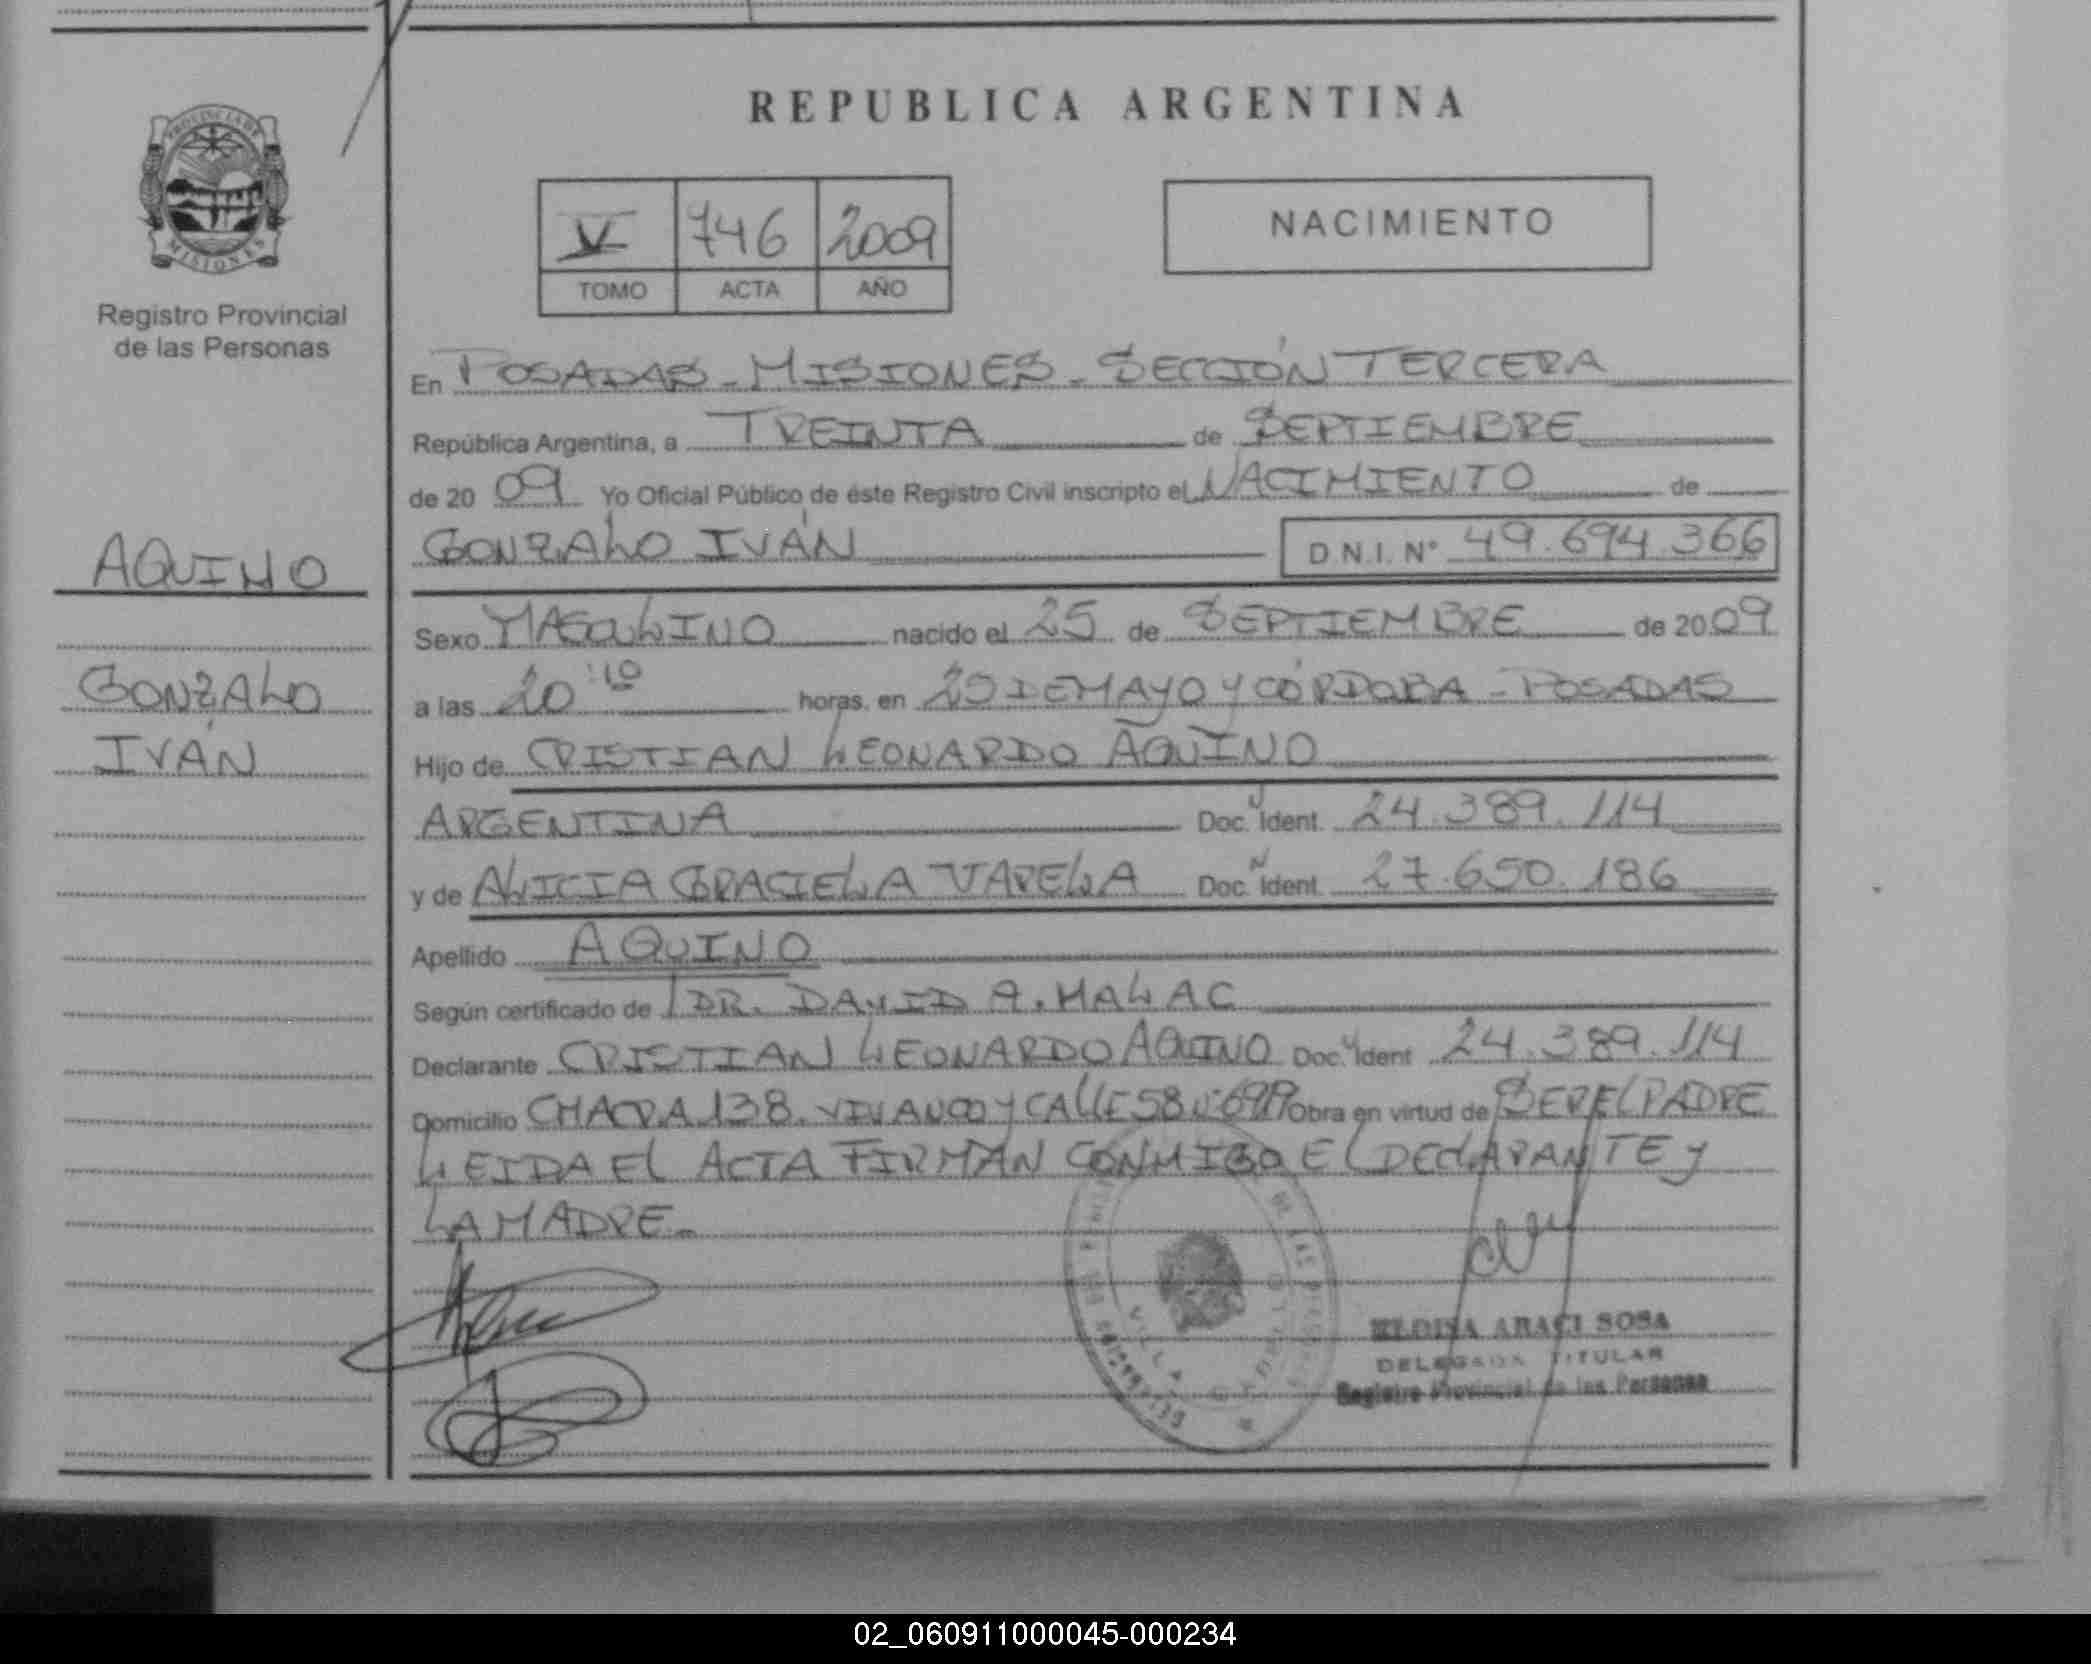 REPUBLICA ARGENTINA
PROVINCIA DE
MISIONES
Registro Provincial
de las Personas
V 746 2009
TOMO ACTA AÑO
NACIMIENTO
En POSADAS - MISIONES - SECCIÓN TERCERA
República Argentina, a TREINTA de SEPTIEMBRE
de 20 09 Yo Oficial Público de éste Registro Civil inscripto el NACIMIENTO de
GONZALO IVÁN D.N.I. Nº 49.694.366
AQUINO
GONZALO
IVÁN
Sexo MASCULINO nacido el 25 de SEPTIEMBRE de 20 09
a las 20:10 horas, en 25 DE MAYO Y CÓRDOBA - POSADAS
Hijo de CRISTIAN LEONARDO AQUINO
ARGENTINA Doc. Ident. 24.389.114
y de ALICIA GRACIELA VARELA Doc. Ident. 27.650.186
Apellido AQUINO
Según certificado de DR. DAVID A. MALAC
Declarante CRISTIAN LEONARDO AQUINO Doc. Ident 24.389.114
Domicilio CHACRA 138. VIVANCO Y CALLE 58 Nº Obra en virtud de SER EL PADRE
LEIDA EL ACTA FIRMAN CONMIGO EL DECLARANTE Y
LA MADRE.
VILLA
ARACI SOSA
DELEGADA TITULAR
Registro Provincial de las Personas
02_060911000045-000234